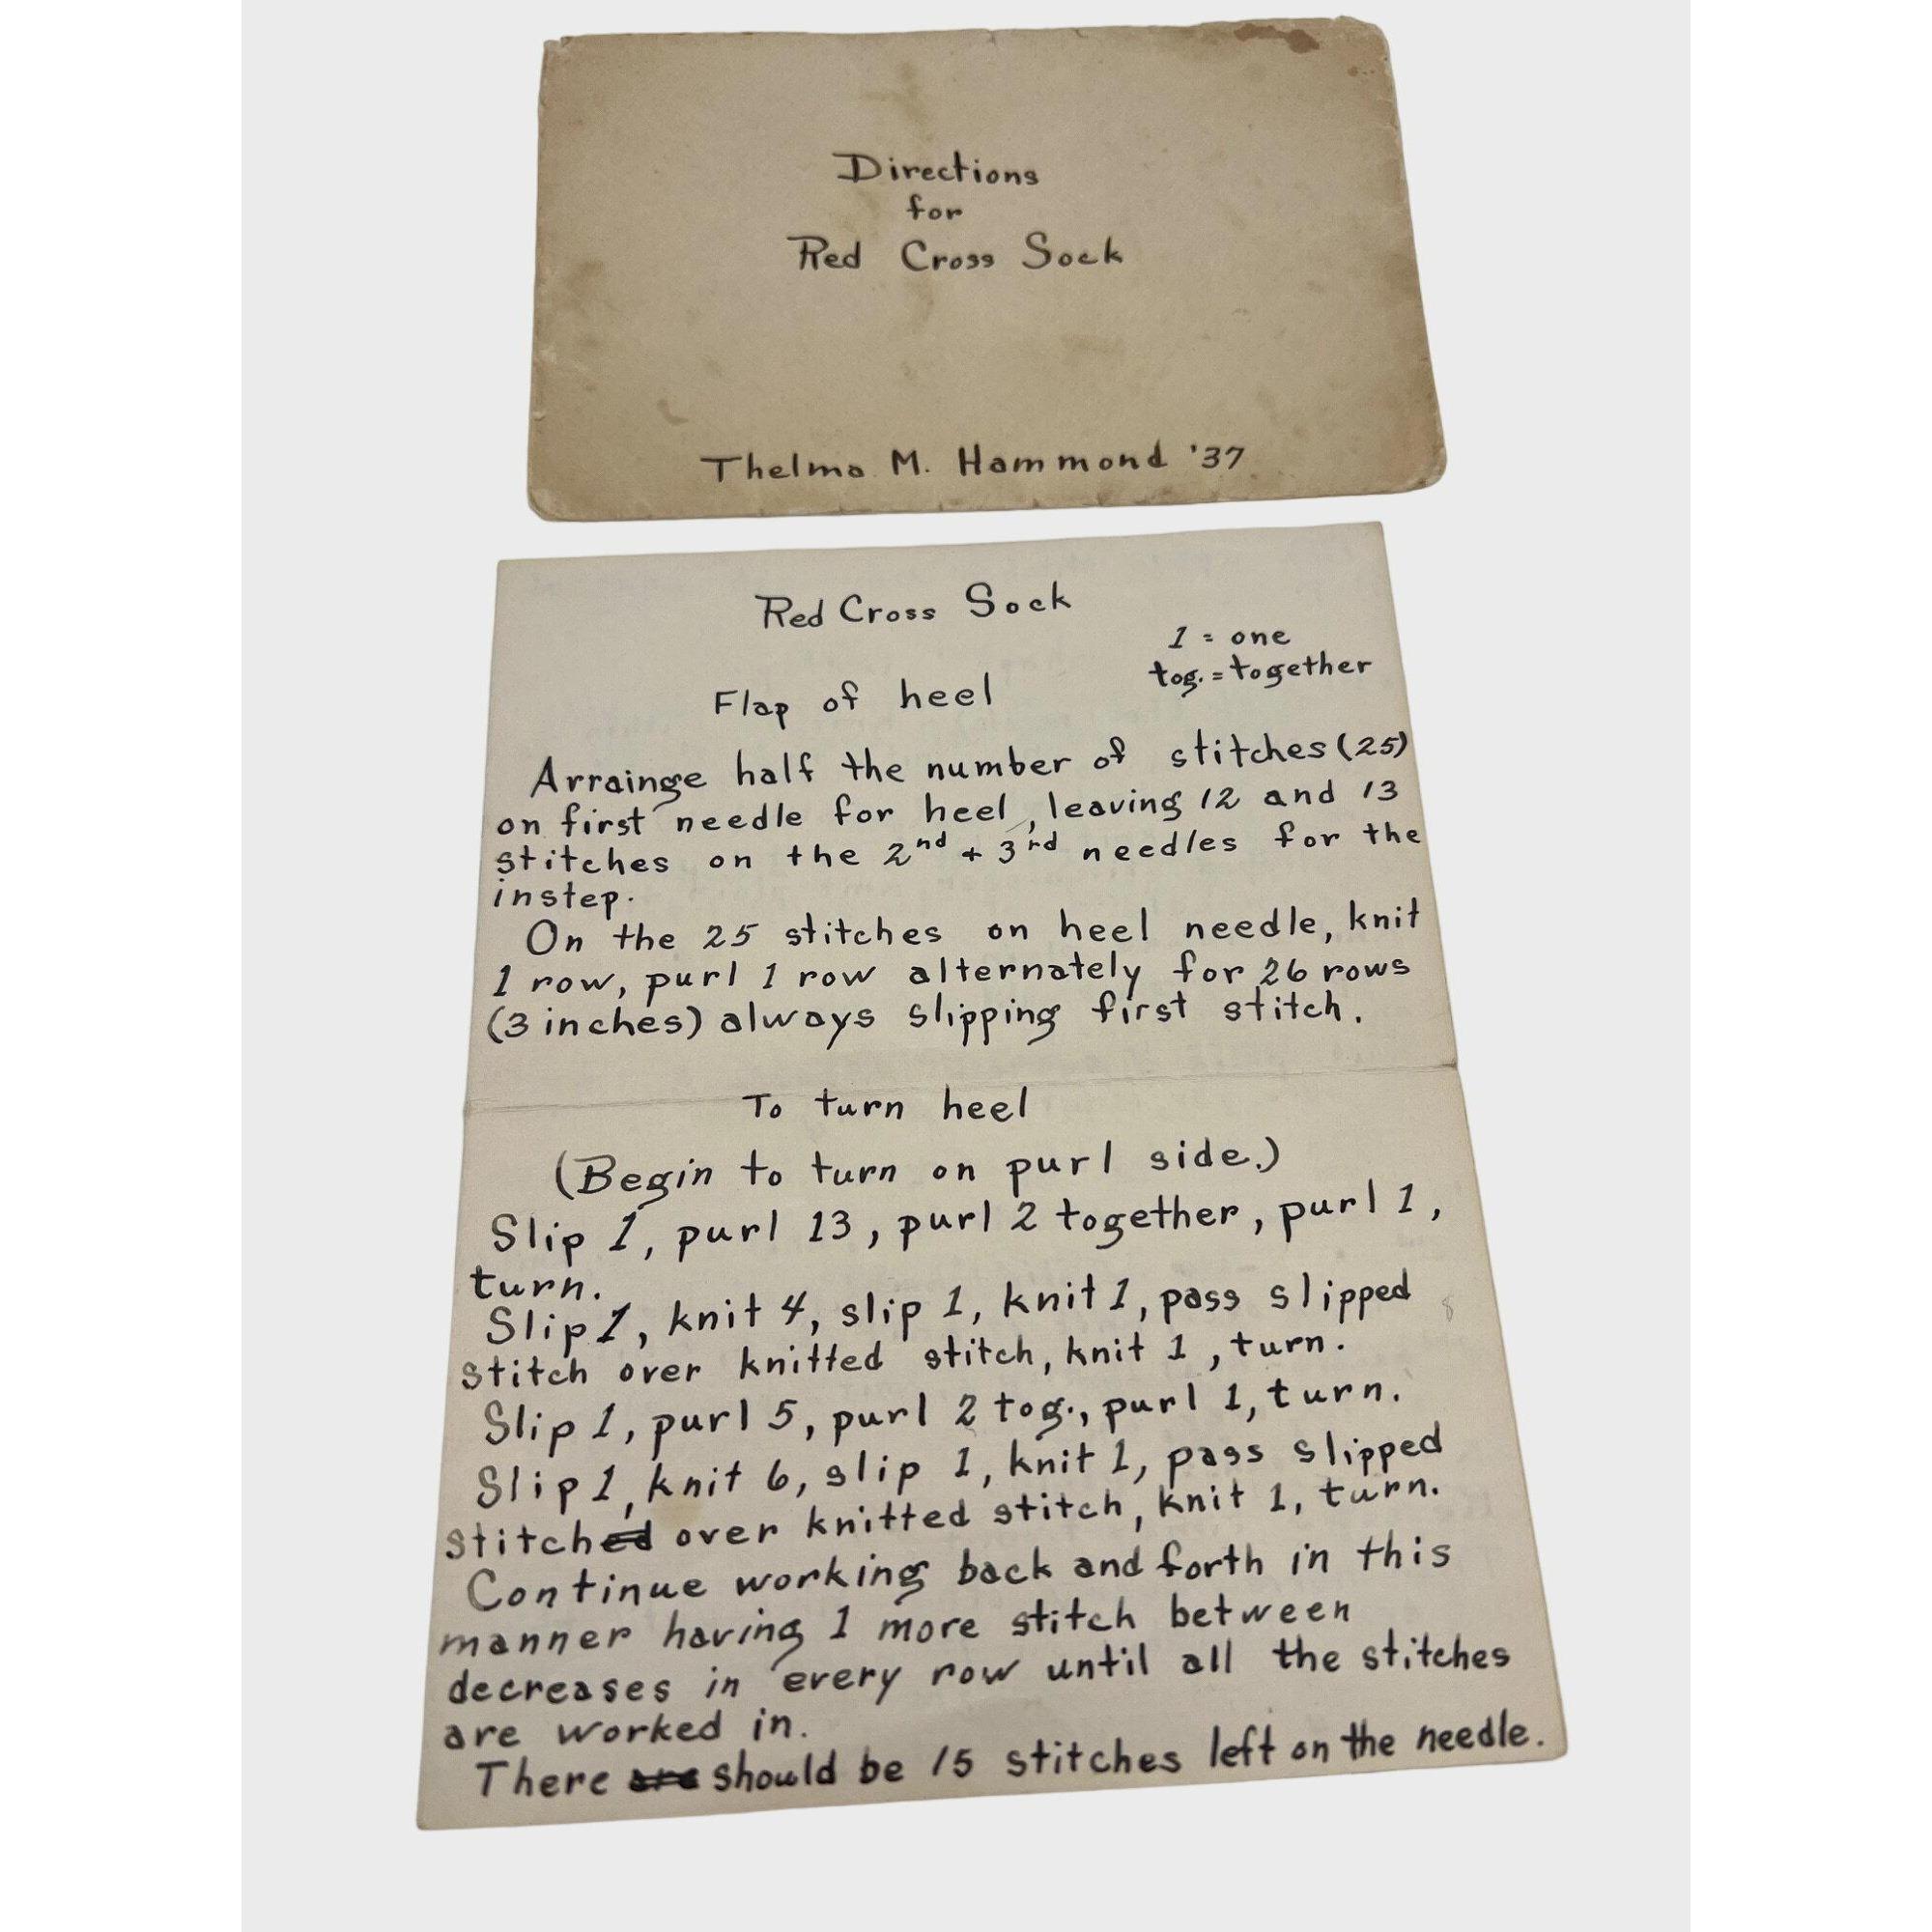 Directions
for
Red Cross Sock
Thelma M. Hammond '37
Red Cross Sock
1 = one
tog. = together
Flap of heel
Arrainge half the number of stitches (25)
on first needle for heel, leaving 12 and 13
stitches on the 2nd + 3rd needles for the
instep.
On the 25 stitches on heel needle, knit
1 row, purl 1 row alternately for 26 rows
(3 inches) always slipping first stitch.
To turn heel
(Begin to turn on purl side.)
Slip 1, purl 13, purl 2 together, purl 1,
turn.
Slip 1, knit 4, slip 1, knit 1, pass slipped
stitch over knitted stitch, knit 1, turn.
Slip 1, purl 5, purl 2 tog., purl 1, turn.
Slip 1, knit 6, slip 1, knit 1, pass slipped
stitched over knitted stitch, knit 1, turn.
Continue working back and forth in this
manner having 1 more stitch between
decreases in every row until all the stitches
are worked in.
There are should be 15 stitches left on the needle.